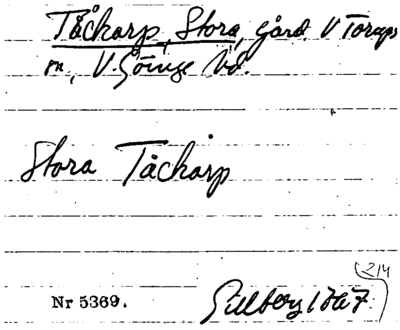 Tåckarp, Stora, gård. V Torups
sn, V. Göinge hd.
Stora Tåckarp
214
Nr 5369.
Gillberg 1767